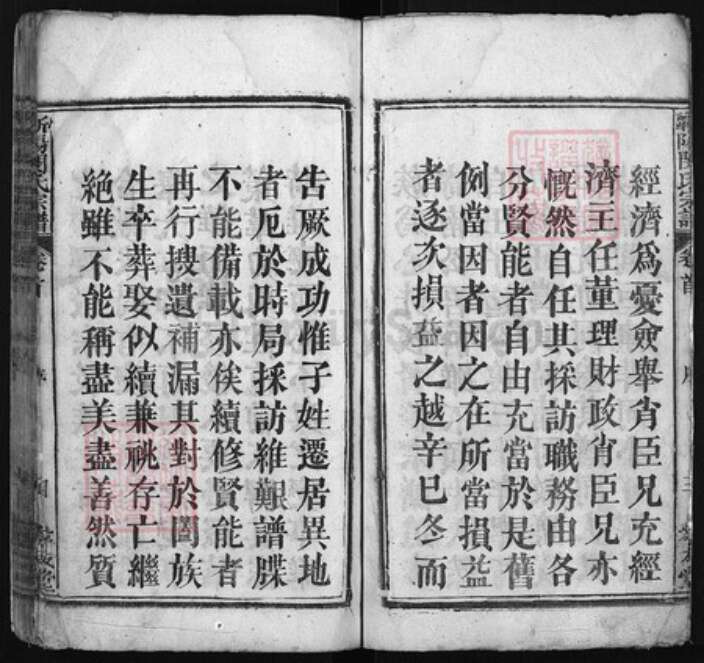 經濟爲憂僉舉肖臣兄充經
濟主任董理財政肖臣兄亦
慨然自任其採訪職務由各
分賢能者自由充當於是舊
例當因者因之在所當損益
者逐次損益之越辛巳冬而
告厥成功惟子姓遷居異地
者厄於時局採訪維艱譜牒
不能備載亦俟續修賢能者
再行搜遺補漏其對於闔族
生卒葬娶似續兼祧存亡繼
絕雖不能稱盡美盡善然質
氏宗譜
卷首
氏宗譜
卷首